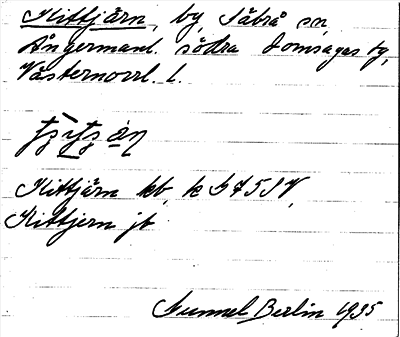 Kittjärn, by, Säbrå sn,
Ångermanl. södra domsagas tg,
Västernorrl. l.
Kittjärn kb, k
Kittjern jb
Gunnel Berlin 1935